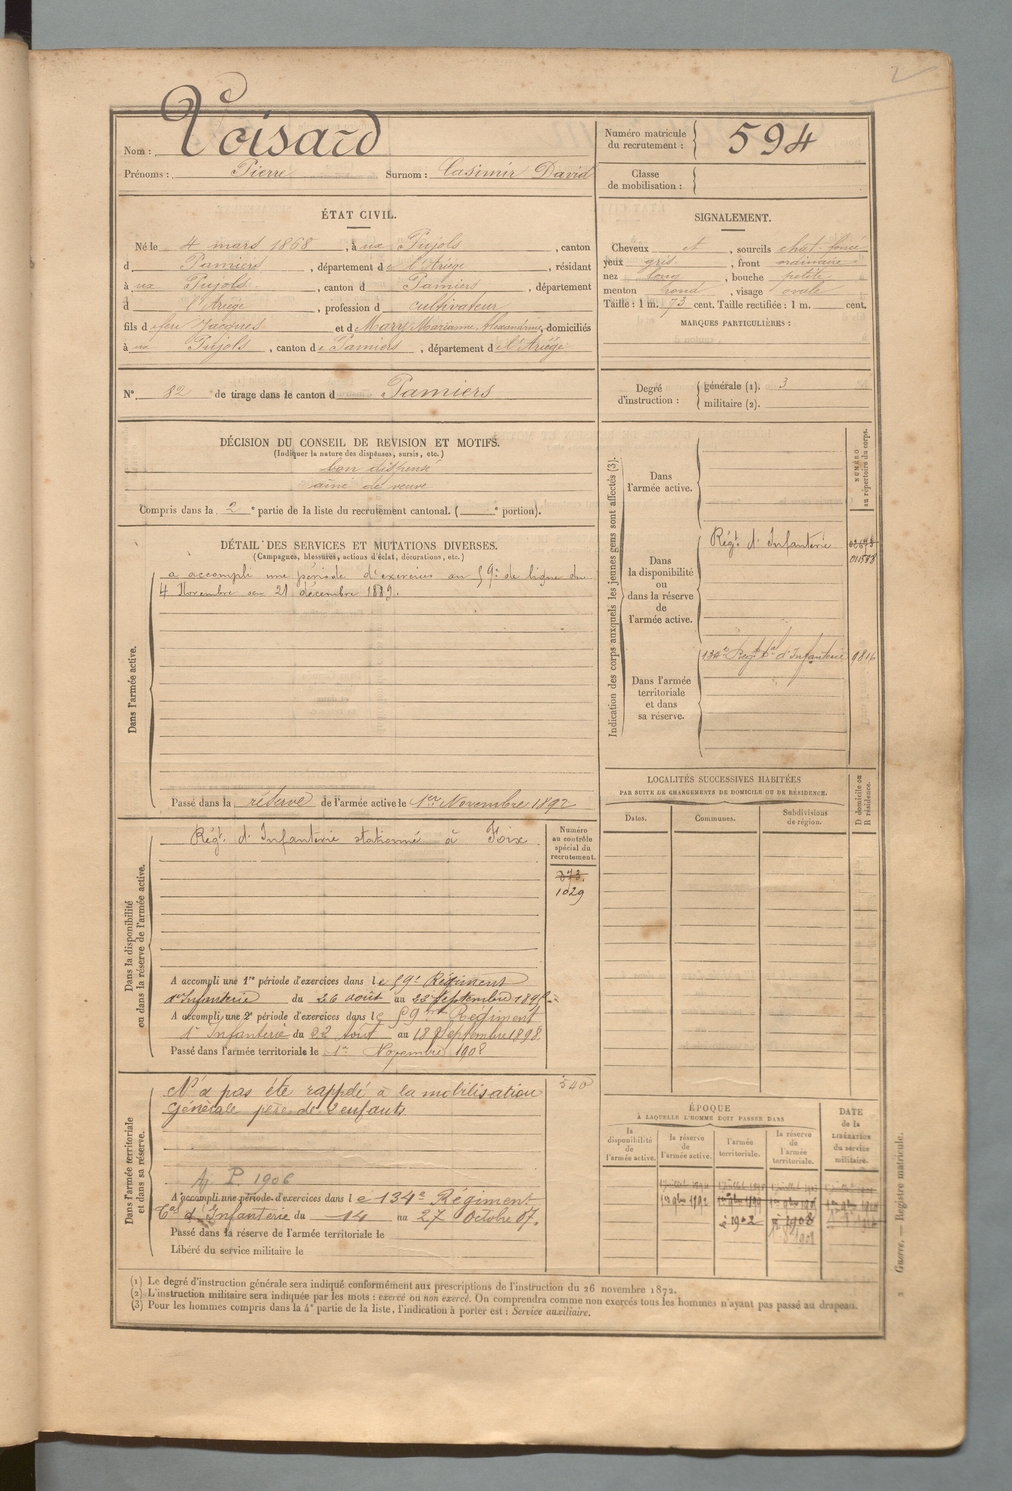 Nom : Voisard
Prénoms : Pierre Surnom : Casimir David
Numéro matricule du recrutement : 594
Classe de mobilisation :
ÉTAT CIVIL.
Né le 4 mars 1868, à ux Pujols, canton
d Pamiers, département de l'Ariège, résidant
à ux Pujols, canton d Pamiers, département
d l'Ariège, profession d cultivateur
fils d feu Jacques et d Mary Marianne Alexandrine, domiciliés
à ux Pujols, canton de Pamiers, département de l'Ariège
N° 82 de tirage dans le canton d Pamiers
SIGNALEMENT.
Cheveux et, sourcils chat. foncé
yeux gris, front ordinaire
nez long, bouche petite
menton rond, visage ovale
Taille : 1 m. 73 cent. Taille rectifiée : 1 m. cent.
MARQUES PARTICULIÈRES :
Degré d'instruction : générale (1). 3
militaire (2).
DÉCISION DU CONSEIL DE REVISION ET MOTIFS.
(Indiquer la nature des dispenses, sursis, etc.)
bon dispensé
aîné de veuve
Compris dans la 2e partie de la liste du recrutement cantonal. ( e portion).
DÉTAIL DES SERVICES ET MUTATIONS DIVERSES.
(Campagnes, blessures, actions d'éclat, décorations, etc.)
Dans l'armée active.
a accompli une période d'exercices au 59e de ligne du
4 Novembre au 21 décembre 1889.
Passé dans la réserve de l'armée active le 1er Novembre 1892
Indication des corps auxquels les jeunes gens sont affectés (3).
NUMÉRO au répertoire du corps.
Dans l'armée active.
Dans la disponibilité ou dans la réserve de l'armée active.
Régt. d'Infanterie
01588
Dans l'armée territoriale et dans sa réserve.
134e Régt Tal d'Infanterie 1816
LOCALITÉS SUCCESSIVES HABITÉES
PAR SUITE DE CHANGEMENTS DE DOMICILE OU DE RÉSIDENCE.
D domicile ou R résidence.
Dates. Communes. Subdivisions de région.
Dans la disponibilité ou dans la réserve de l'armée active.
Numéro au contrôle spécial du recrutement.
Régt. d'Infanterie stationné à Foix
373.
1029
A accompli une 1re période d'exercices dans le 59e Régiment
d'Infanterie du 26 août au 22 Septembre 189
A accompli une 2e période d'exercices dans le 59e Régiment
d'Infanterie du 22 août au 18 Septembre 1898
Passé dans l'armée territoriale le 1er Novembre 190
Dans l'armée territoriale et dans sa réserve.
540
N'a pas été rappelé à la mobilisation
Générale père de enfants
A. P. 1906
A accompli une période d'exercices dans le 134e Régiment
Tal d'Infanterie du 14 au 27 Octobre 07.
Passé dans la réserve de l'armée territoriale le
Libéré du service militaire le
ÉPOQUE
À LAQUELLE L'HOMME DOIT PASSER DANS
DATE de la LIBÉRATION du service militaire.
la disponibilité de l'armée active. la réserve de l'armée active. l'armée territoriale. la réserve de l'armée territoriale.
(1) Le degré d'instruction générale sera indiqué conformément aux prescriptions de l'instruction du 26 novembre 1872.
(2) L'instruction militaire sera indiquée par les mots : exercé ou non exercé. On comprendra comme non exercés tous les hommes n'ayant pas passé au drapeau.
(3) Pour les hommes compris dans la 4e partie de la liste, l'indication à porter est : Service auxiliaire.
Guerre. — Registre matricule.